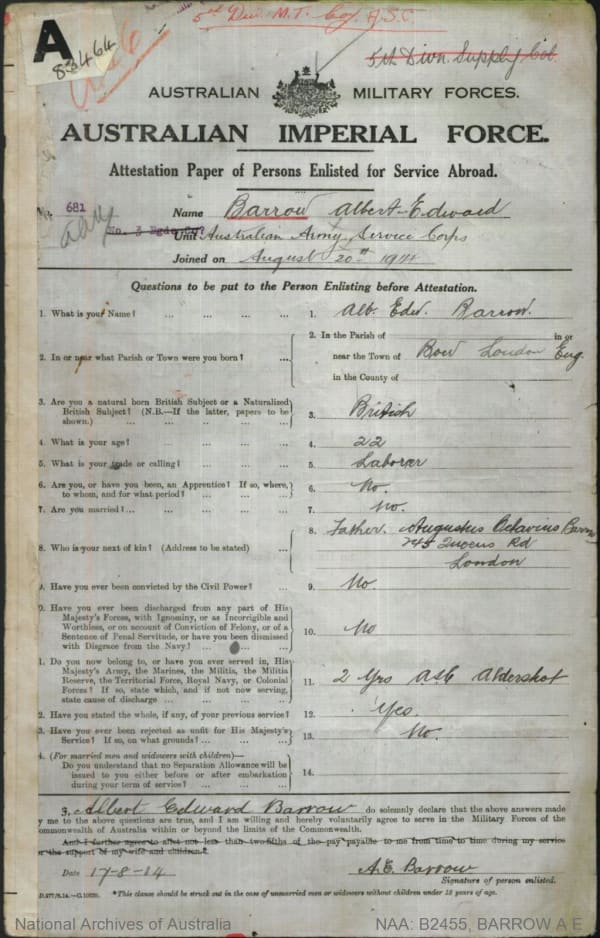 A
83464
5th Div. M.T. Coy. A.S.C.
5th Divn. Supply Col.
AUSTRALIAN MILITARY FORCES.
AUSTRALIAN IMPERIAL FORCE.
Attestation Paper of Persons Enlisted for Service Abroad.
No. 681
Name Barrow Albert Edward
Unit Australian Army Service Corps
Joined on August 20th 1914
Questions to be put to the Person Enlisting before Attestation.
1. What is your Name? ... ... ... ... 1. Alb. Edw. Barrow.
2. In or near what Parish or Town were you born? ... 2. In the Parish of in or
near the Town of Bow London Eng.
in the County of
3. Are you a natural born British Subject or a Naturalized
British Subject? (N.B.—If the latter, papers to be
shown.) ... ... ... ... 3. British
4. What is your age? ... ... ... 4. 22
5. What is your trade or calling? ... ... 5. Laborer
6. Are you, or have you been, an Apprentice? If so, where,
to whom, and for what period? ... ... ... 6. No.
7. Are you married? ... ... ... ... 7. No.
8. Who is your next of kin? (Address to be stated) ... 8. Father. Augustus Octavius Barrow
245 Queens Rd
London
9. Have you ever been convicted by the Civil Power? ... 9. No.
0. Have you ever been discharged from any part of His
Majesty's Forces, with Ignominy, or as Incorrigible and
Worthless, or on account of Conviction of Felony, or of a
Sentence of Penal Servitude, or have you been dismissed
with Disgrace from the Navy? ... ... ... 10. No
1. Do you now belong to, or have you ever served in, His
Majesty's Army, the Marines, the Militia, the Militia
Reserve, the Territorial Force, Royal Navy, or Colonial
Forces? If so, state which, and if not now serving,
state cause of discharge ... ... ... ... 11. 2 Yrs ASC Aldershot
2. Have you stated the whole, if any, of your previous service? 12. Yes.
3. Have you ever been rejected as unfit for His Majesty's
Service? If so, on what grounds? ... ... ... 13. No.
4. (For married men and widowers with children)—
Do you understand that no Separation Allowance will be
issued to you either before or after embarkation
during your term of service? ... ... 14.
I, Albert Edward Barrow do solemnly declare that the above answers made
y me to the above questions are true, and I am willing and hereby voluntarily agree to serve in the Military Forces of the
ommonwealth of Australia within or beyond the limits of the Commonwealth.
And I further agree to allot not less than two-fifths of the pay payable to me from time to time during my service
or the support of my wife and children.*
Date 17-8-14 A.E. Barrow
Signature of person enlisted.
*This clause should be struck out in the case of unmarried men or widowers without children under 18 years of age.
National Archives of Australia NAA: B2455, BARROW A E